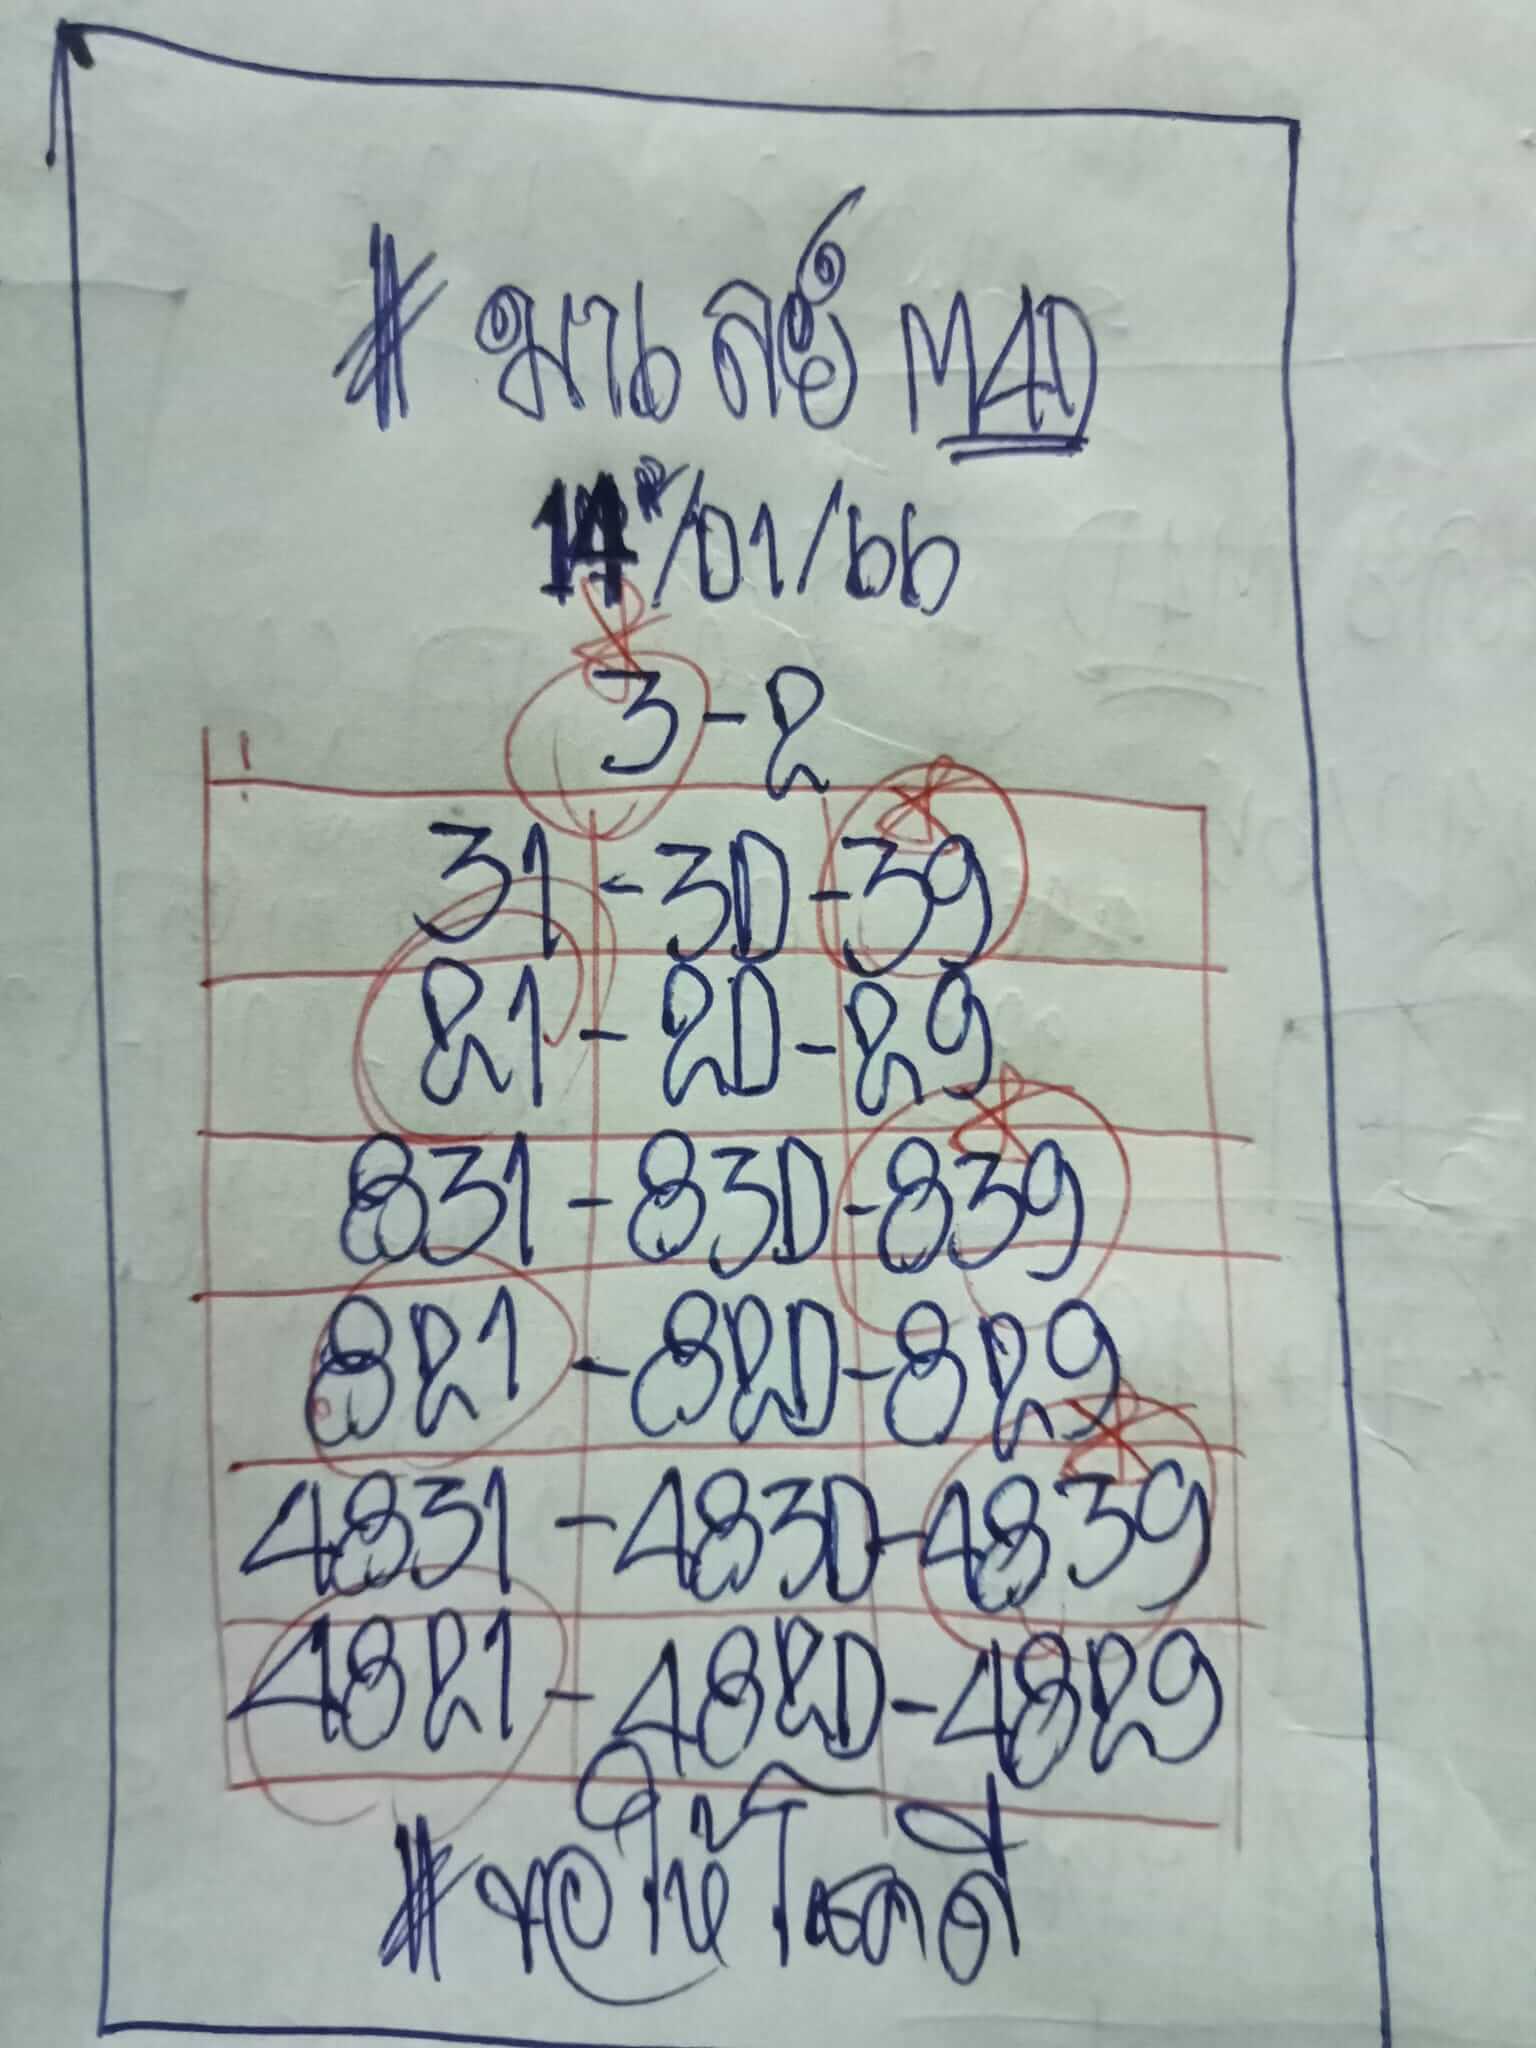 # มาเลย์ M4D
14*/01/66
3-2
31-30-39
21-20-29
831-830-839
821-820-829
4831-4830-4839
4821-4820-4829
#ขอให้โชคดี